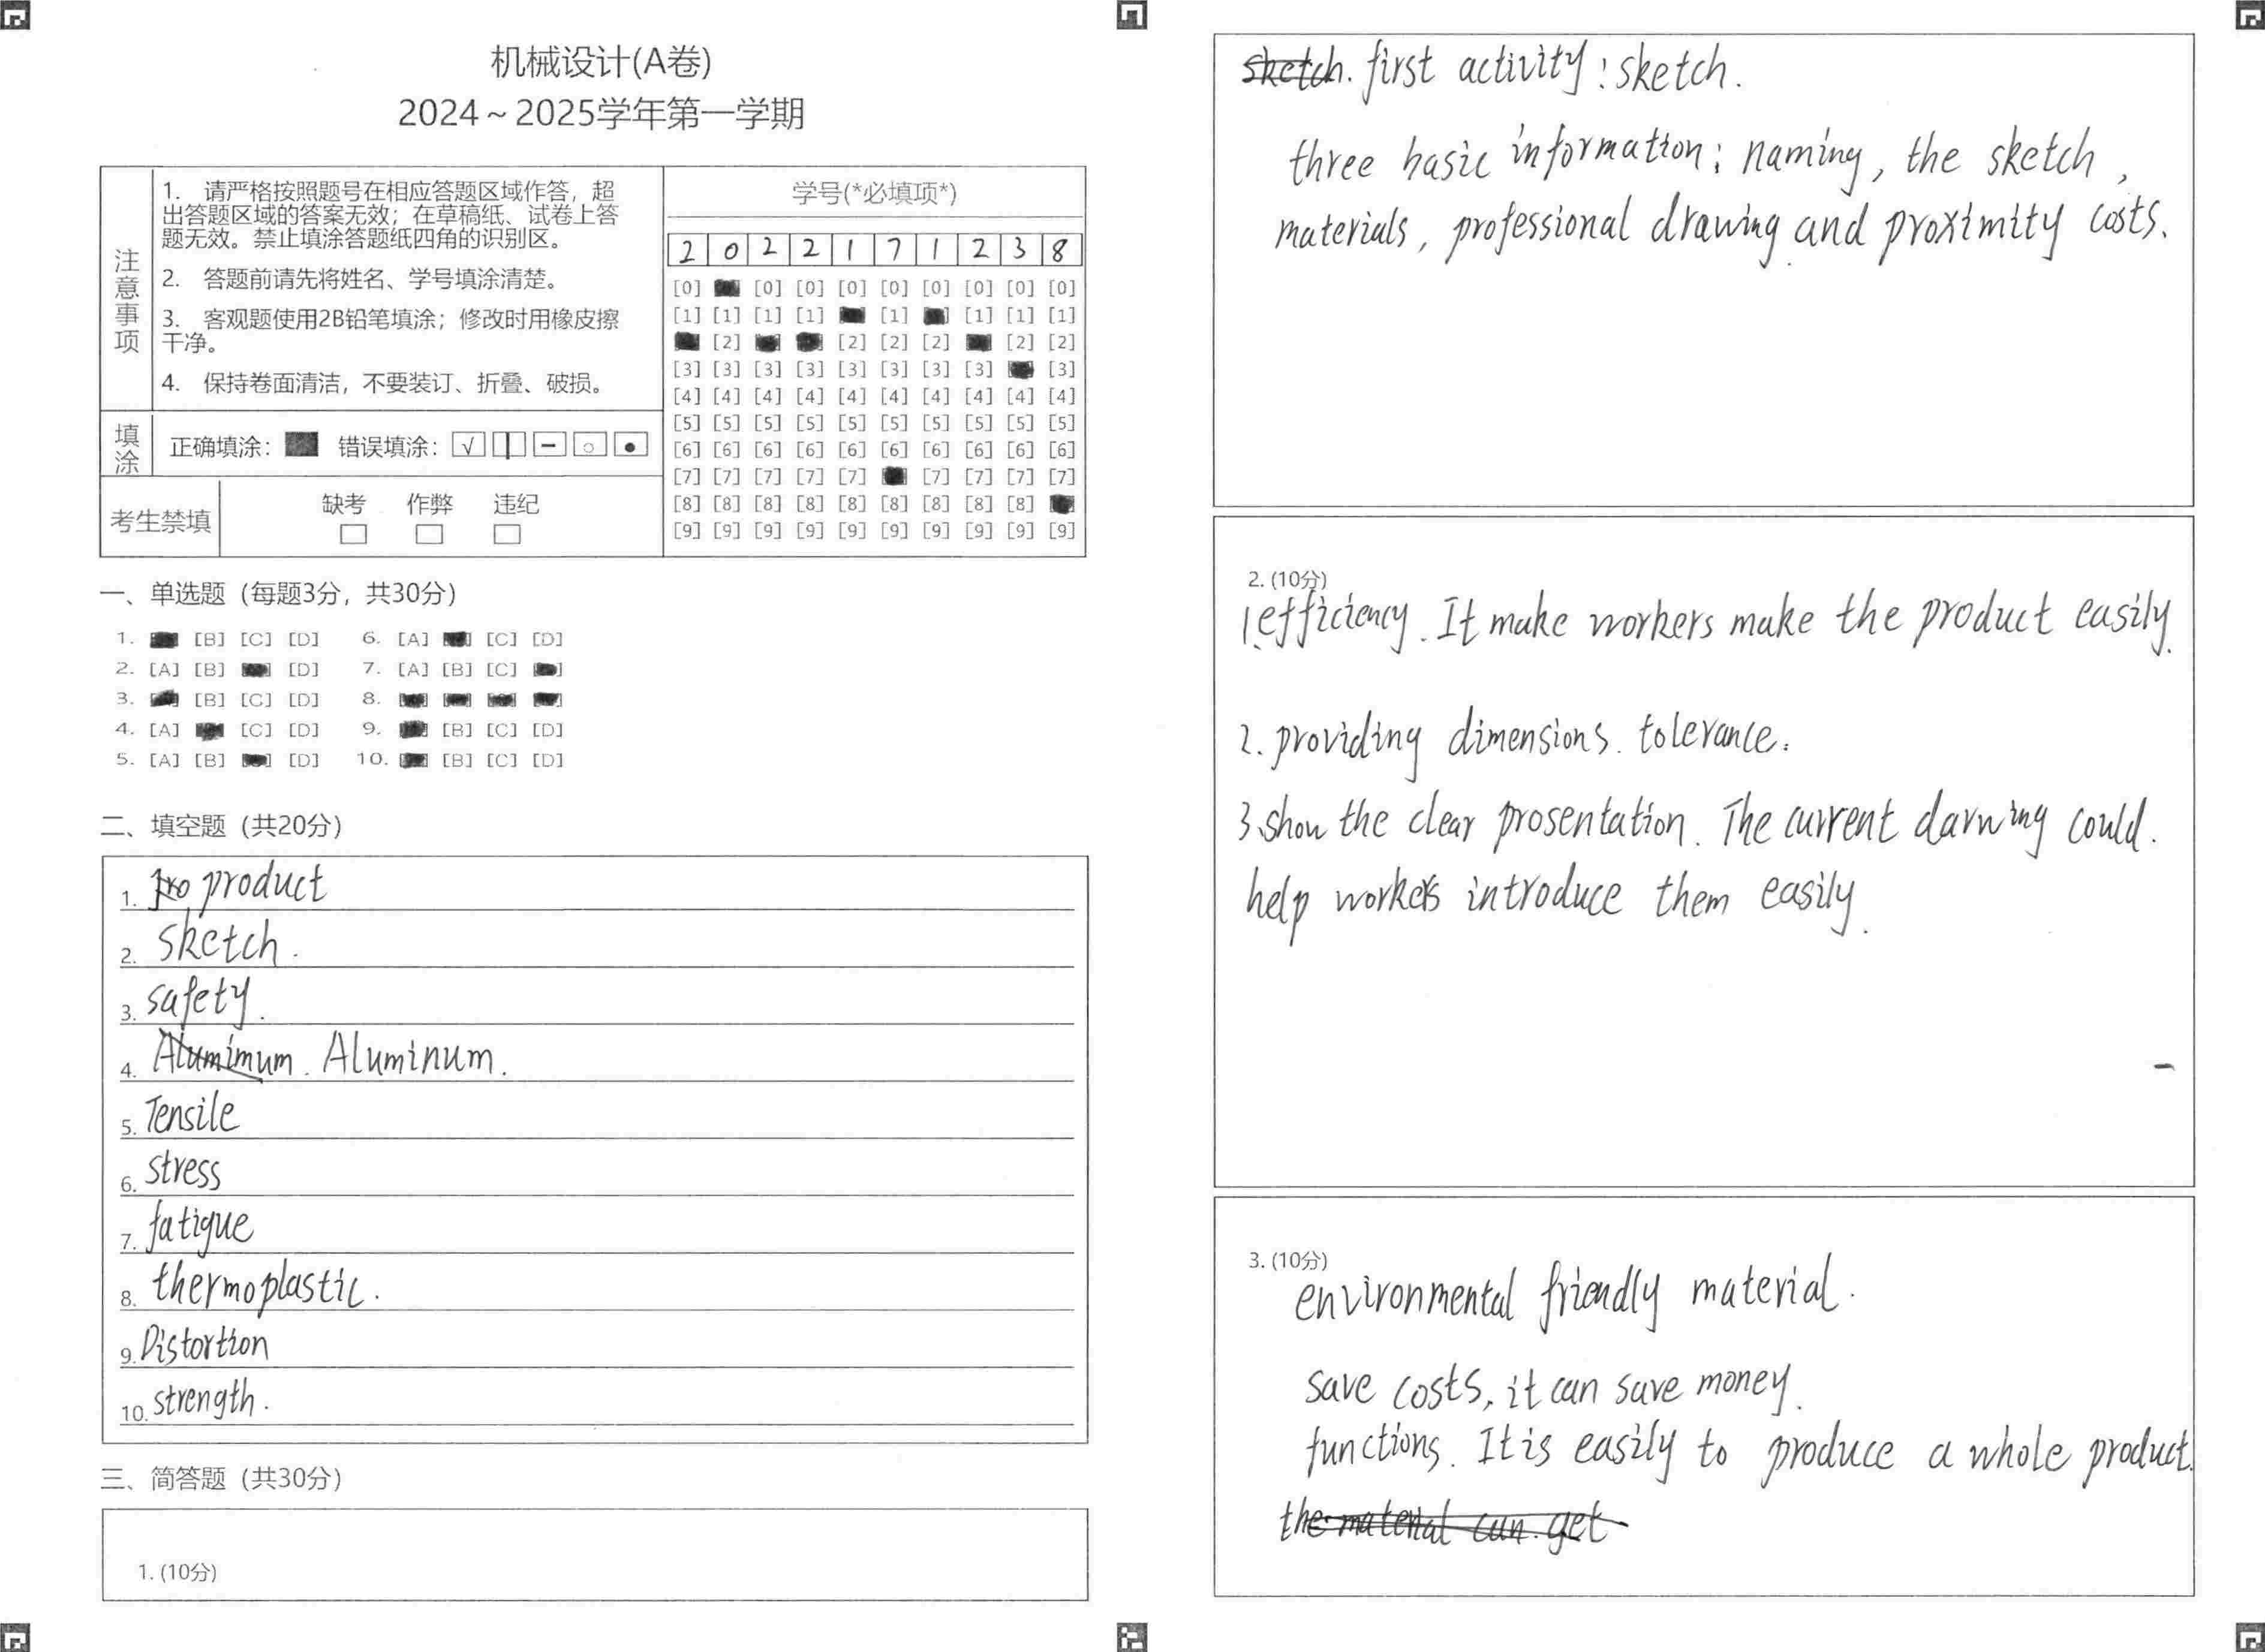 机械设计(A卷)
2024～2025学年第一学期
注意事项
1. 请严格按照题号在相应答题区域作答，超
出答题区域的答案无效；在草稿纸、试卷上答
题无效。禁止填涂答题纸四角的识别区。
2. 答题前请先将姓名、学号填涂清楚。
3. 客观题使用2B铅笔填涂；修改时用橡皮擦
干净。
4. 保持卷面清洁，不要装订、折叠、破损。
填涂
正确填涂： 错误填涂： √
考生禁填
缺考 作弊 违纪
学号(*必填项*)
2 0 2 2 1 7 1 2 3 8
[0] [0] [0] [0] [0] [0] [0] [0] [0]
[1] [1] [1] [1] [1] [1] [1] [1]
[2] [2] [2] [2] [2] [2]
[3] [3] [3] [3] [3] [3] [3] [3] [3]
[4] [4] [4] [4] [4] [4] [4] [4] [4] [4]
[5] [5] [5] [5] [5] [5] [5] [5] [5] [5]
[6] [6] [6] [6] [6] [6] [6] [6] [6] [6]
[7] [7] [7] [7] [7] [7] [7] [7] [7]
[8] [8] [8] [8] [8] [8] [8] [8] [8]
[9] [9] [9] [9] [9] [9] [9] [9] [9] [9]
一、单选题（每题3分，共30分）
1. [B] [C] [D] 6. [A] [C] [D]
2. [A] [B] [D] 7. [A] [B] [C]
3. [B] [C] [D] 8.
4. [A] [C] [D] 9. [B] [C] [D]
5. [A] [B] [D] 10. [B] [C] [D]
二、填空题（共20分）
1. product
2. sketch.
3. safety.
4. Alumimum. Aluminum.
5. Tensile
6. stress
7. fatigue
8. thermoplastic.
9. Distortion
10. strength.
三、简答题（共30分）
1. (10分)
sketch. first activity: sketch.
three basic information: naming, the sketch,
materials, professional drawing and proximity costs.
2. (10分)
1.efficiency. It make workers make the product easily.
2. providing dimensions. tolerance.
3.show the clear prosentation. The current darwing could.
help workers introduce them easily.
3. (10分)
environmental friendly material.
save costs, it can save money.
functions. It is easily to produce a whole product.
the material can get